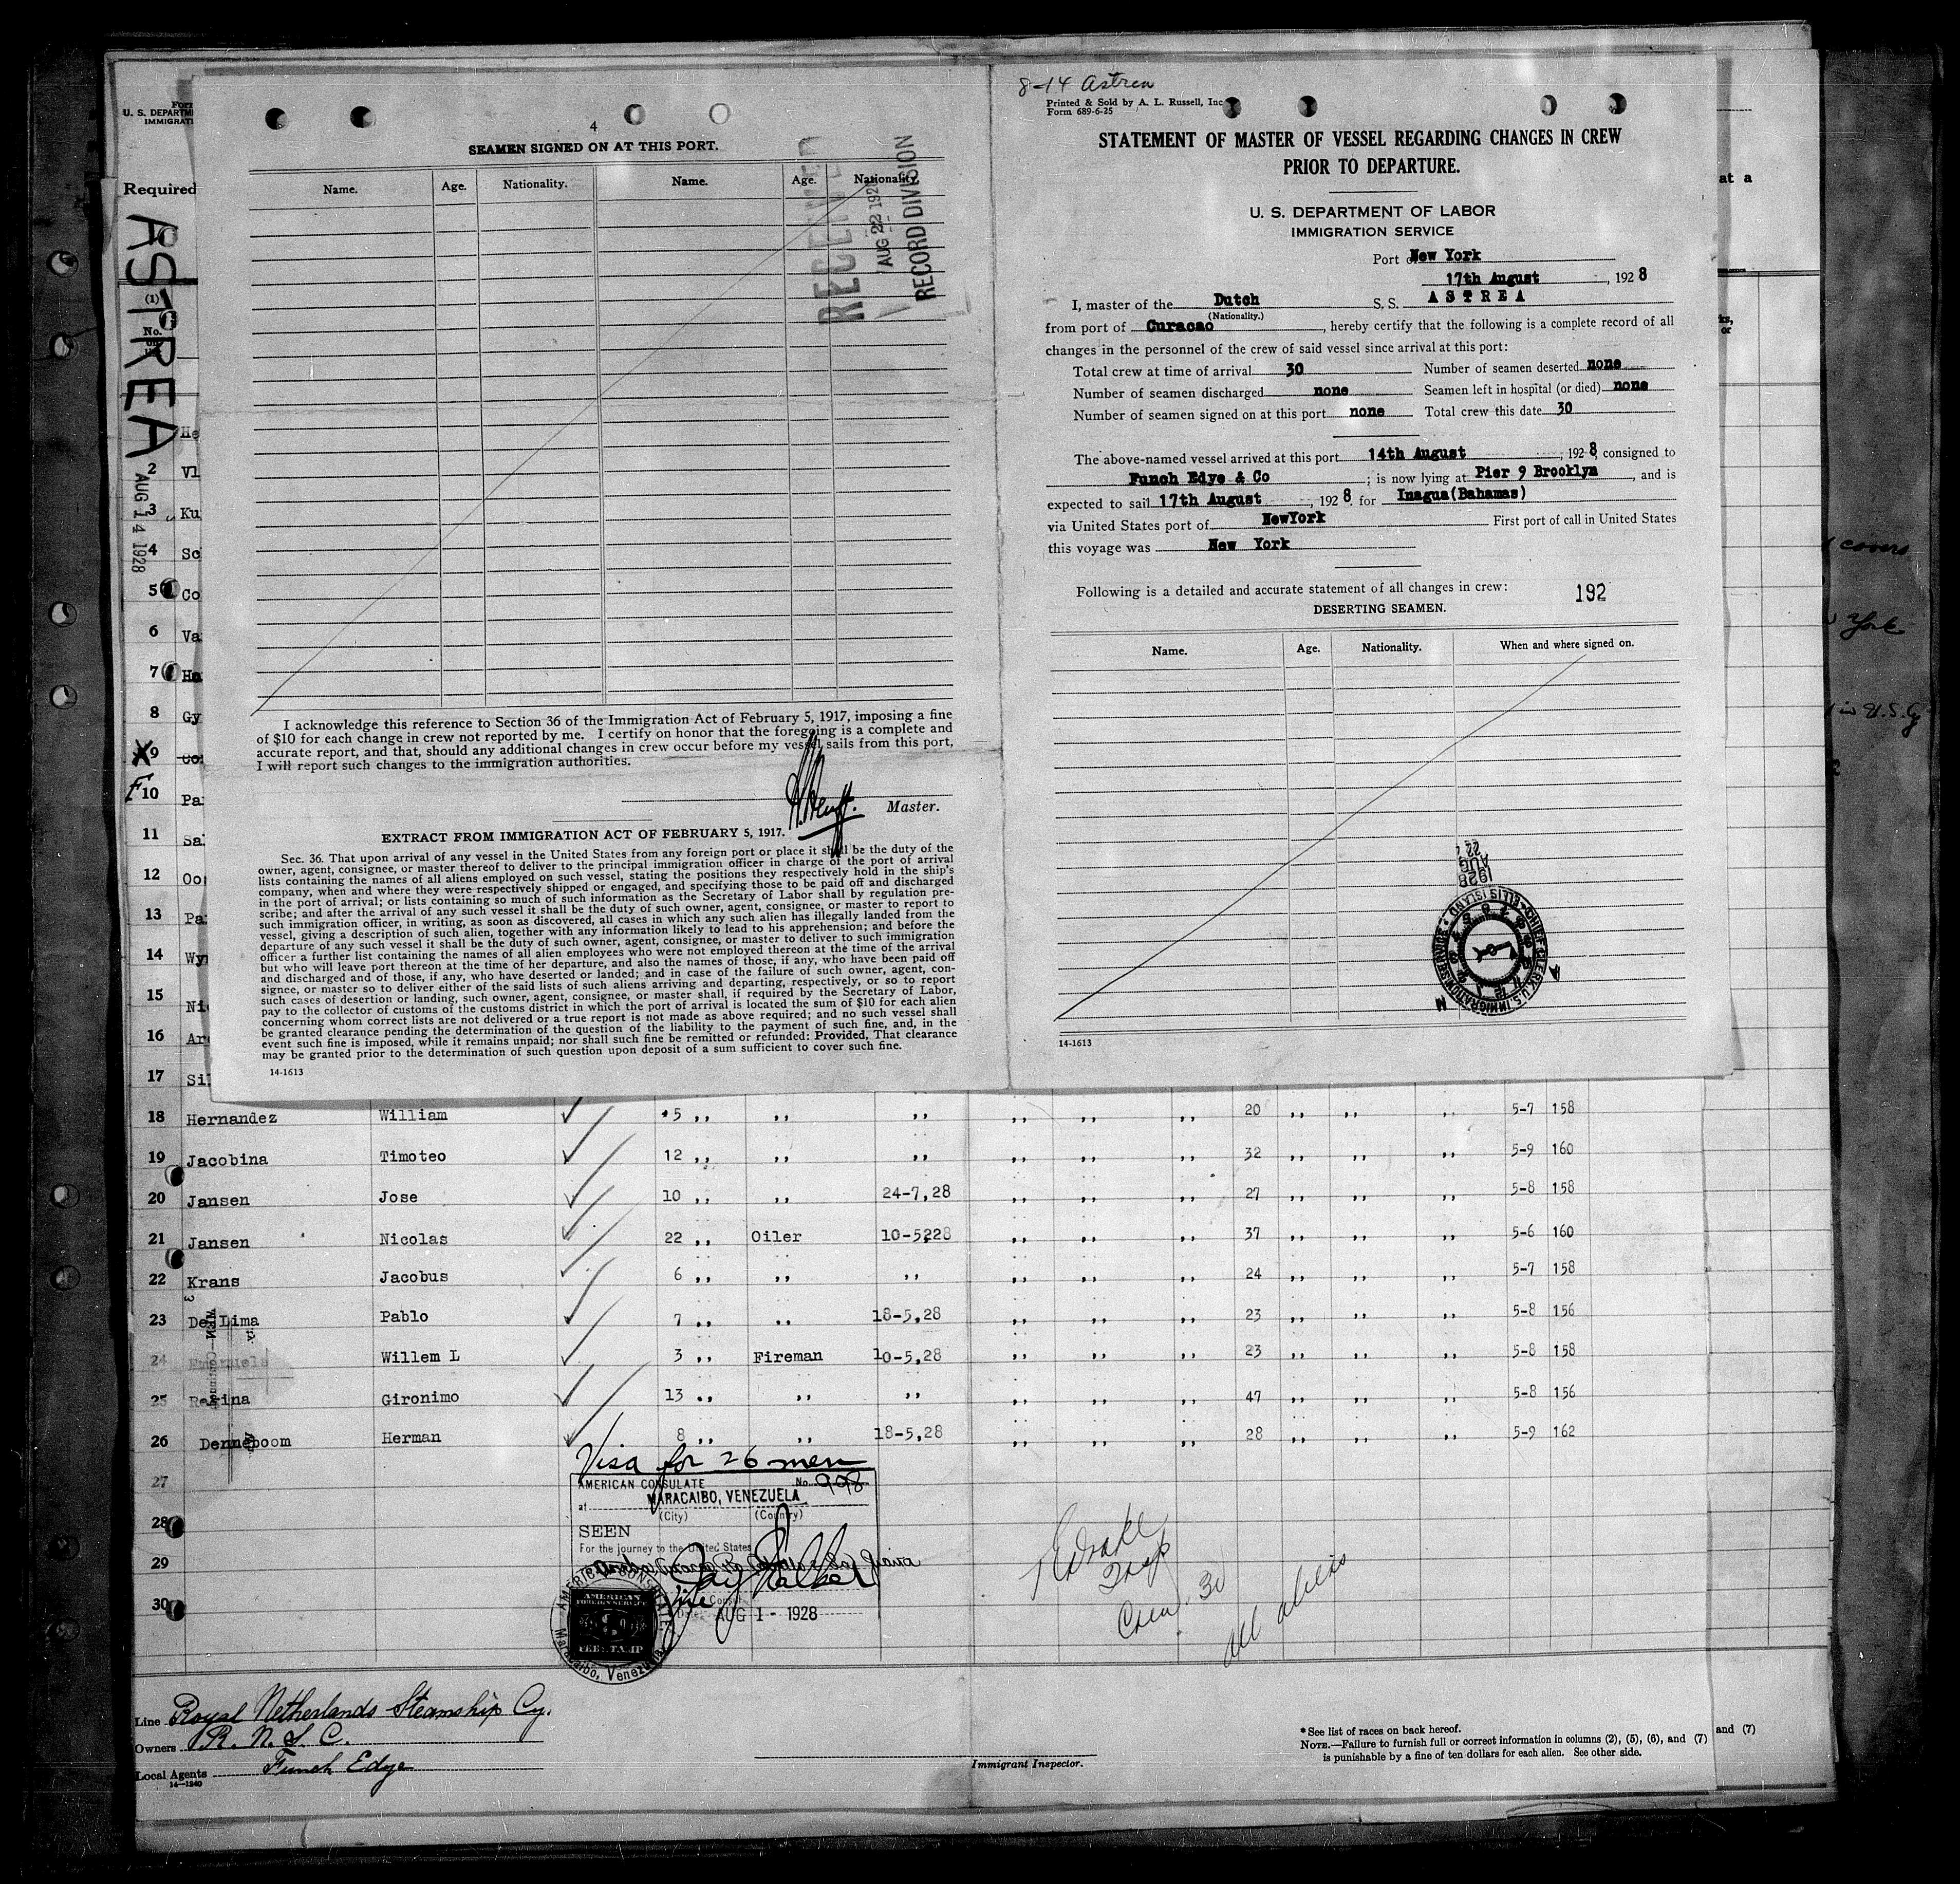 8-14 Astrea
Form
U. S. DEPARTM
IMMIGRATI
Required
ASTREA
AUG 14 1928
4
SEAMEN SIGNED ON AT THIS PORT.
Name. Age. Nationality. Name. Age. Nationality.
RECEIVED
AUG 22 1928
RECORD DIVISION
I acknowledge this reference to Section 36 of the Immigration Act of February 5, 1917, imposing a fine
of $10 for each change in crew not reported by me. I certify on honor that the foregoing is a complete and
accurate report, and that, should any additional changes in crew occur before my vessel sails from this port,
I will report such changes to the immigration authorities.
Master.
EXTRACT FROM IMMIGRATION ACT OF FEBRUARY 5, 1917.
Sec. 36. That upon arrival of any vessel in the United States from any foreign port or place it shall be the duty of the
owner, agent, consignee, or master thereof to deliver to the principal immigration officer in charge of the port of arrival
lists containing the names of all aliens employed on such vessel, stating the positions they respectively hold in the ship's
company, when and where they were respectively shipped or engaged, and specifying those to be paid off and discharged
in the port of arrival; or lists containing so much of such information as the Secretary of Labor shall by regulation pre-
scribe; and after the arrival of any such vessel it shall be the duty of such owner, agent, consignee, or master to report to
such immigration officer, in writing, as soon as discovered, all cases in which any such alien has illegally landed from the
vessel, giving a description of such alien, together with any information likely to lead to his apprehension; and before the
departure of any such vessel it shall be the duty of such owner, agent, consignee, or master to deliver to such immigration
officer a further list containing the names of all alien employees who were not employed thereon at the time of the arrival
but who will leave port thereon at the time of her departure, and also the names of those, if any, who have been paid off
and discharged and of those, if any, who have deserted or landed; and in case of the failure of such owner, agent, con-
signee, or master so to deliver either of the said lists of such aliens arriving and departing, respectively, or so to report
such cases of desertion or landing, such owner, agent, consignee, or master shall, if required by the Secretary of Labor,
pay to the collector of customs of the customs district in which the port of arrival is located the sum of $10 for each alien
concerning whom correct lists are not delivered or a true report is not made as above required; and no such vessel shall
be granted clearance pending the determination of the question of the liability to the payment of such fine, and, in the
event such fine is imposed, while it remains unpaid; nor shall such fine be remitted or refunded: Provided, That clearance
may be granted prior to the determination of such question upon deposit of a sum sufficient to cover such fine.
14-1613
Printed & Sold by A. L. Russell, Inc
Form 689-6-25
STATEMENT OF MASTER OF VESSEL REGARDING CHANGES IN CREW
PRIOR TO DEPARTURE.
U. S. DEPARTMENT OF LABOR
IMMIGRATION SERVICE
Port of New York
17th August, 1928
I, master of the Dutch S. S. ASTREA
(Nationality.)
from port of Curacao, hereby certify that the following is a complete record of all
changes in the personnel of the crew of said vessel since arrival at this port:
Total crew at time of arrival 30 Number of seamen deserted none
Number of seamen discharged none Seamen left in hospital (or died) none
Number of seamen signed on at this port none Total crew this date 30
The above-named vessel arrived at this port 14th August, 1928, consigned to
Funch Edye & Co; is now lying at Pier 9 Brooklyn, and is
expected to sail 17th August, 1928. for Inagua(Bahamas)
via United States port of NewYork First port of call in United States
this voyage was New York
Following is a detailed and accurate statement of all changes in crew: 192
DESERTING SEAMEN.
Name. Age. Nationality. When and where signed on.
AUG 22
1928
CHIEF CLERK U.S. IMMIGRATION SERVICE ELLIS ISLAND
14-1613
at a
covers
York
in U.S.
(1)
No.
He
2 Vl
3 Ku
4 Sc
5 Co
6 Va
7 Ha
8 Gy
X 9 Co
F 10 Pa
11 Sa
12 Oo
13 Pa
14 Wy
15 Ni
16 Ar
17 Si
18 Hernandez William 5 ,, ,, ,, ,, ,, ,, 20 ,, ,, ,, 5-7 158
19 Jacobina Timoteo 12 ,, ,, ,, ,, ,, ,, 32 ,, ,, ,, 5-9 160
20 Jansen Jose 10 ,, ,, 24-7,28 ,, ,, ,, 27 ,, ,, ,, 5-8 158
21 Jansen Nicolas 22 ,, Oiler 10-5228 ,, ,, ,, 37 ,, ,, ,, 5-6 160
22 Krans Jacobus 6 ,, ,, ,, ,, ,, ,, 24 ,, ,, ,, 5-7 158
23 De Lima Pablo 7 ,, ,, 18-5,28 ,, ,, ,, 23 ,, ,, ,, 5-8 156
24 Willem L 3 ,, Fireman 10-5,28 ,, ,, ,, 23 ,, ,, ,, 5-8 158
25 Regina Gironimo 13 ,, ,, ,, ,, ,, ,, 47 ,, ,, ,, 5-8 156
26 Denneboom Herman 8 ,, ,, 18-5,28 ,, ,, ,, 28 ,, ,, ,, 5-9 162
27
28
29
30
Visa for 26 men
AMERICAN CONSULATE No. 998
at MARACAIBO, VENEZUELA
(City) (Country)
SEEN
For the journey to the United States
Vice Consul
Date AUG 1 - 1928
AMERICAN CONSULATE
AMERICAN
FOREIGN SERVICE
FEE STAMP
Maracaibo, Venezuela
Insp
Crew 30
All aliens
Line Royal Netherlands Steamship Cy.
Owners R. N. S. C.
Local Agents Funch Edye
14-1240
Immigrant Inspector.
*See list of races on back hereof.
NOTE.—Failure to furnish full or correct information in columns (2), (5), (6), and (7)
is punishable by a fine of ten dollars for each alien. See other side.
and (7)